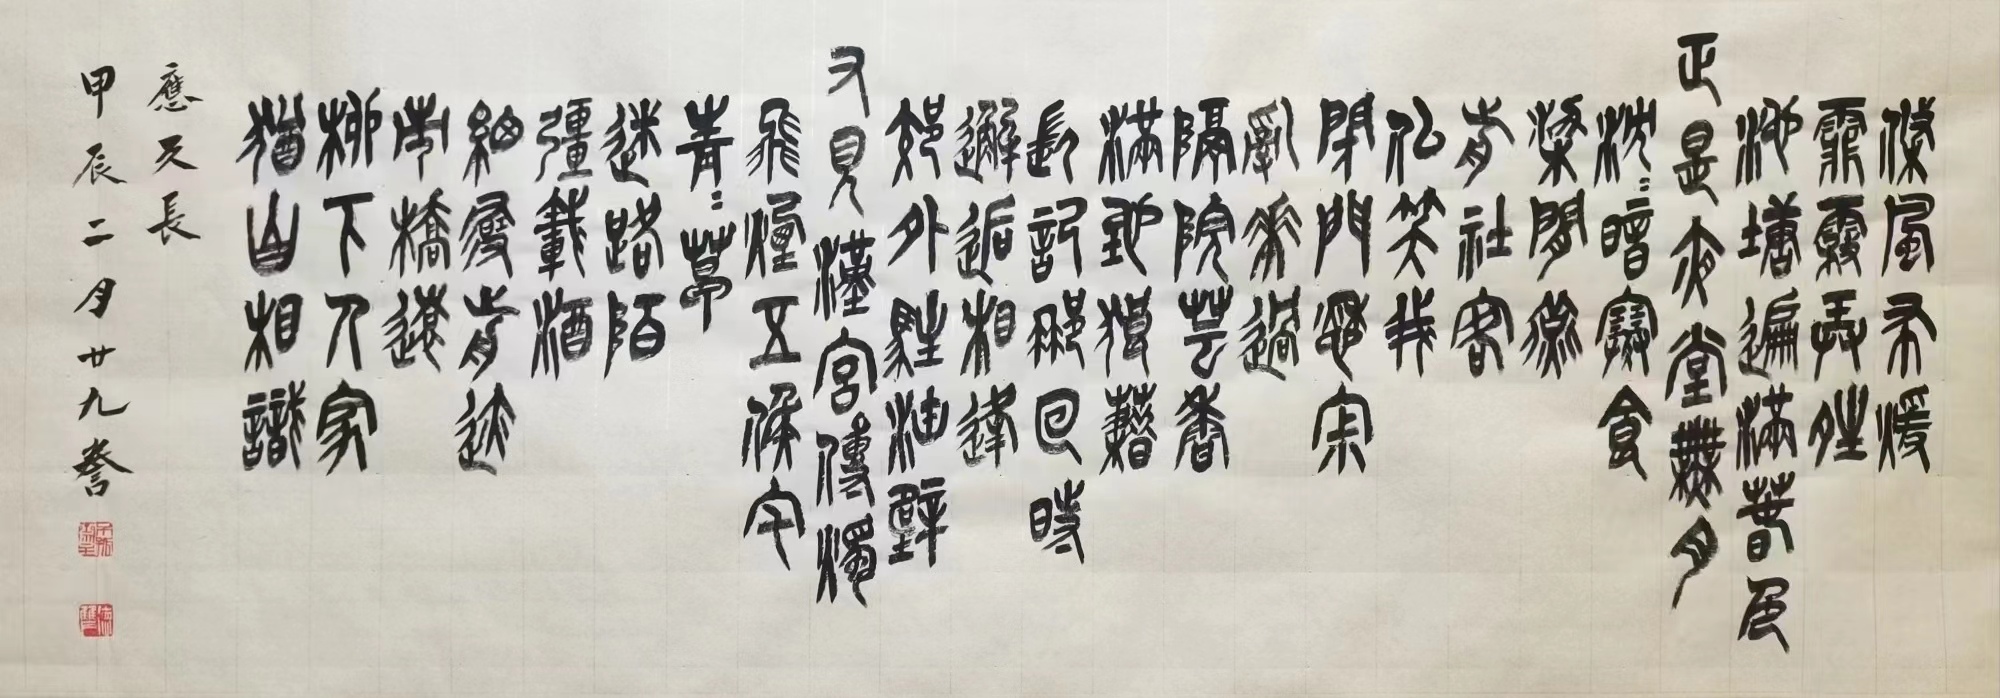 條風布暖
霏霧弄晴
池塘遍滿春色
正是夜堂無月
沈〻暗寒食
梁間燕
前社客
似笑我
閉門愁寂
亂花過
隔院芸香
滿地狼藉
長記那回時
邂逅相逢
郊外駐油壁
又見漢宮傳燭
飛煙五侯宅
青〻草
迷路陌
彊載酒
細尋前迹
市橋遠
柳下人家
猶自相識
應天長
甲辰二月廿九誊